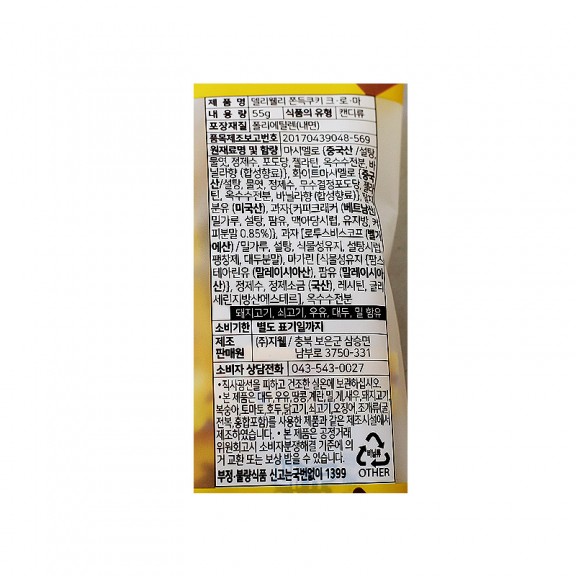 제 품 명 델리웰리 쫀득쿠키 크·로·마
내 용 량 55g 식품의 유형 캔디류
포장재질 폴리에틸렌(내면)
품목제조보고번호 20170439048-569
원재료명 및 함량 마시멜로 (중국산 /설탕,
물엿, 정제수, 포도당, 젤라틴, 옥수수전분, 바
닐라향 (합성향료)}, 화이트마시멜로 (중국
산/설탕, 물엿, 정제수, 무수결정포도당, 젤라
틴, 옥수수전분, 바닐라향 (합성향료)},
분유 (미국산), 과자{커피크래커 (베트남산)
밀가루, 설탕, 팜유, 맥아당시럽, 유지방, 커
피분말 0.85%)}, 과자 [로투스비스코프 (벨기
에산) /밀가루, 설탕, 식물성유지, 설탕시럽,
팽창제, 대두분말), 마가린 [식물성유지 {팜스
테아린유 (말레이시아산), 팜유 (말레이시아
산)}, 정제수, 정제소금 (국산), 레시틴, 글리
세린지방산에스테르], 옥수수전분
돼지고기, 쇠고기, 우유, 대두, 밀 함유
소비기한 별도 표기일까지
제조 (주)지웰/ 충북 보은군 삼승면
판매원 남부로 3750-331
소비자 상담전화 043-543-0027
•직사광선을 피하고 건조한 실온에 보관하십시오.
•본 제품은 대두, 우유, 땅콩, 계란, 밀, 게, 새우, 돼지고기,
복숭아, 토마토, 호두, 닭고기, 쇠고기, 오징어, 조개류(굴,
전복, 홍합포함)를 사용한 제품과 같은 제조시설에서
제조하였습니다. •본 제품은 공정거래
위원회고시 소비자분쟁해결 기준에 의
거 교환 또는 보상 받을 수 있습니다.
비닐류
OTHER
부정·불량식품 신고는국번없이 1399